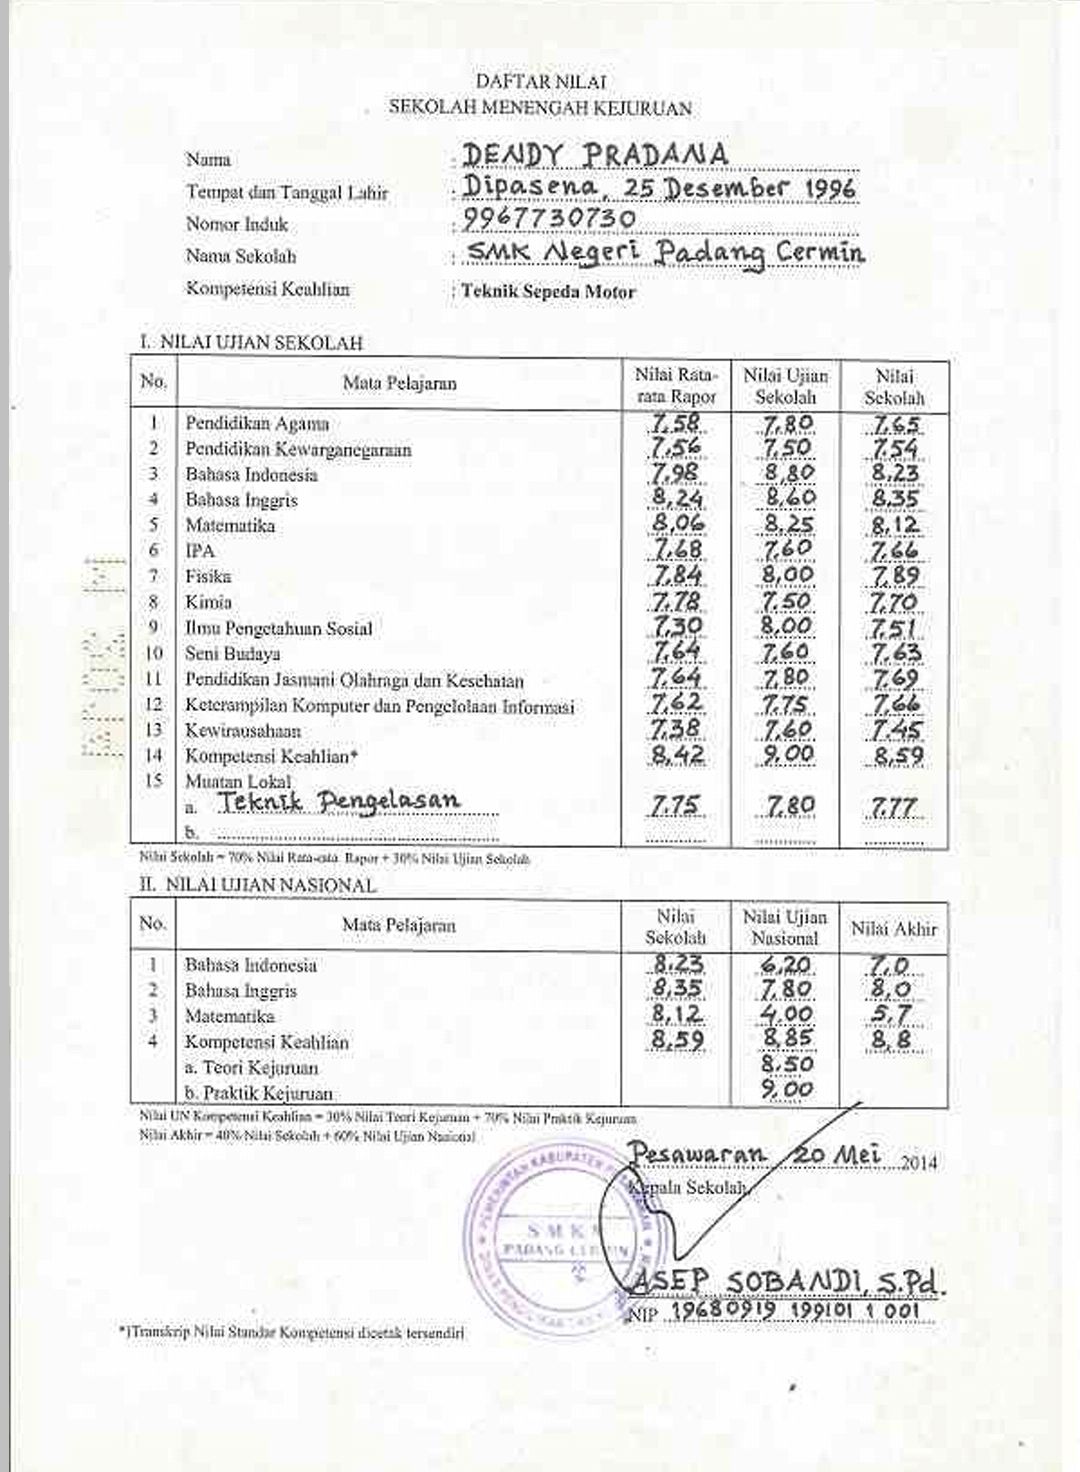 DAFTAR NILAI
SEKOLAH MENENGAH KEJURUAN
Nama : DENDY PRADANA
Tempat dan Tanggal Lahir : Dipasena, 25 Desember 1996
Nomor Induk : 9967730730
Nama Sekolah : SMK Negeri Padang Cermin
Kompetensi Keahlian : Teknik Sepeda Motor
I. NILAI UJIAN SEKOLAH
No. Mata Pelajaran Nilai Rata-rata Rapor Nilai Ujian Sekolah Nilai Sekolah
1 Pendidikan Agama 7,58 7,80 7,65
2 Pendidikan Kewarganegaraan 7,56 7,50 7,54
3 Bahasa Indonesia 7,98 8,80 8,23
4 Bahasa Inggris 8,24 8,60 8,35
5 Matematika 8,06 8,25 8,12
6 IPA 7,68 7,60 7,66
7 Fisika 7,84 8,00 7,89
8 Kimia 7,78 7,50 7,70
9 Ilmu Pengetahuan Sosial 7,30 8,00 7,51
10 Seni Budaya 7,64 7,60 7,63
11 Pendidikan Jasmani Olahraga dan Kesehatan 7,64 7,80 7,69
12 Keterampilan Komputer dan Pengelolaan Informasi 7,62 7,75 7,66
13 Kewirausahaan 7,38 7,60 7,45
14 Kompetensi Keahlian* 8,42 9,00 8,59
15 Muatan Lokal
a. Teknik Pengelasan 7,75 7,80 7,77
b.
Nilai Sekolah = 70% Nilai Rata-rata Rapor + 30% Nilai Ujian Sekolah
II. NILAI UJIAN NASIONAL
No. Mata Pelajaran Nilai Sekolah Nilai Ujian Nasional Nilai Akhir
1 Bahasa Indonesia 8,23 6,20 7,0
2 Bahasa Inggris 8,35 7,80 8,0
3 Matematika 8,12 4,00 5,7
4 Kompetensi Keahlian 8,59 8,85 8,8
a. Teori Kejuruan 8,50
b. Praktik Kejuruan 9,00
Nilai UN Kompetensi Keahlian = 30% Nilai Teori Kejuruan + 70% Nilai Praktik Kejuruan
Nilai Akhir = 40% Nilai Sekolah + 60% Nilai Ujian Nasional
Pesawaran 20 Mei 2014
Kepala Sekolah,
PEMERINTAH KABUPATEN
SMK
PADANG CERMIN
ASEP SOBANDI, S.Pd.
NIP 19680919 199101 1 001
*)Transkrip Nilai Standar Kompetensi dicetak tersendiri